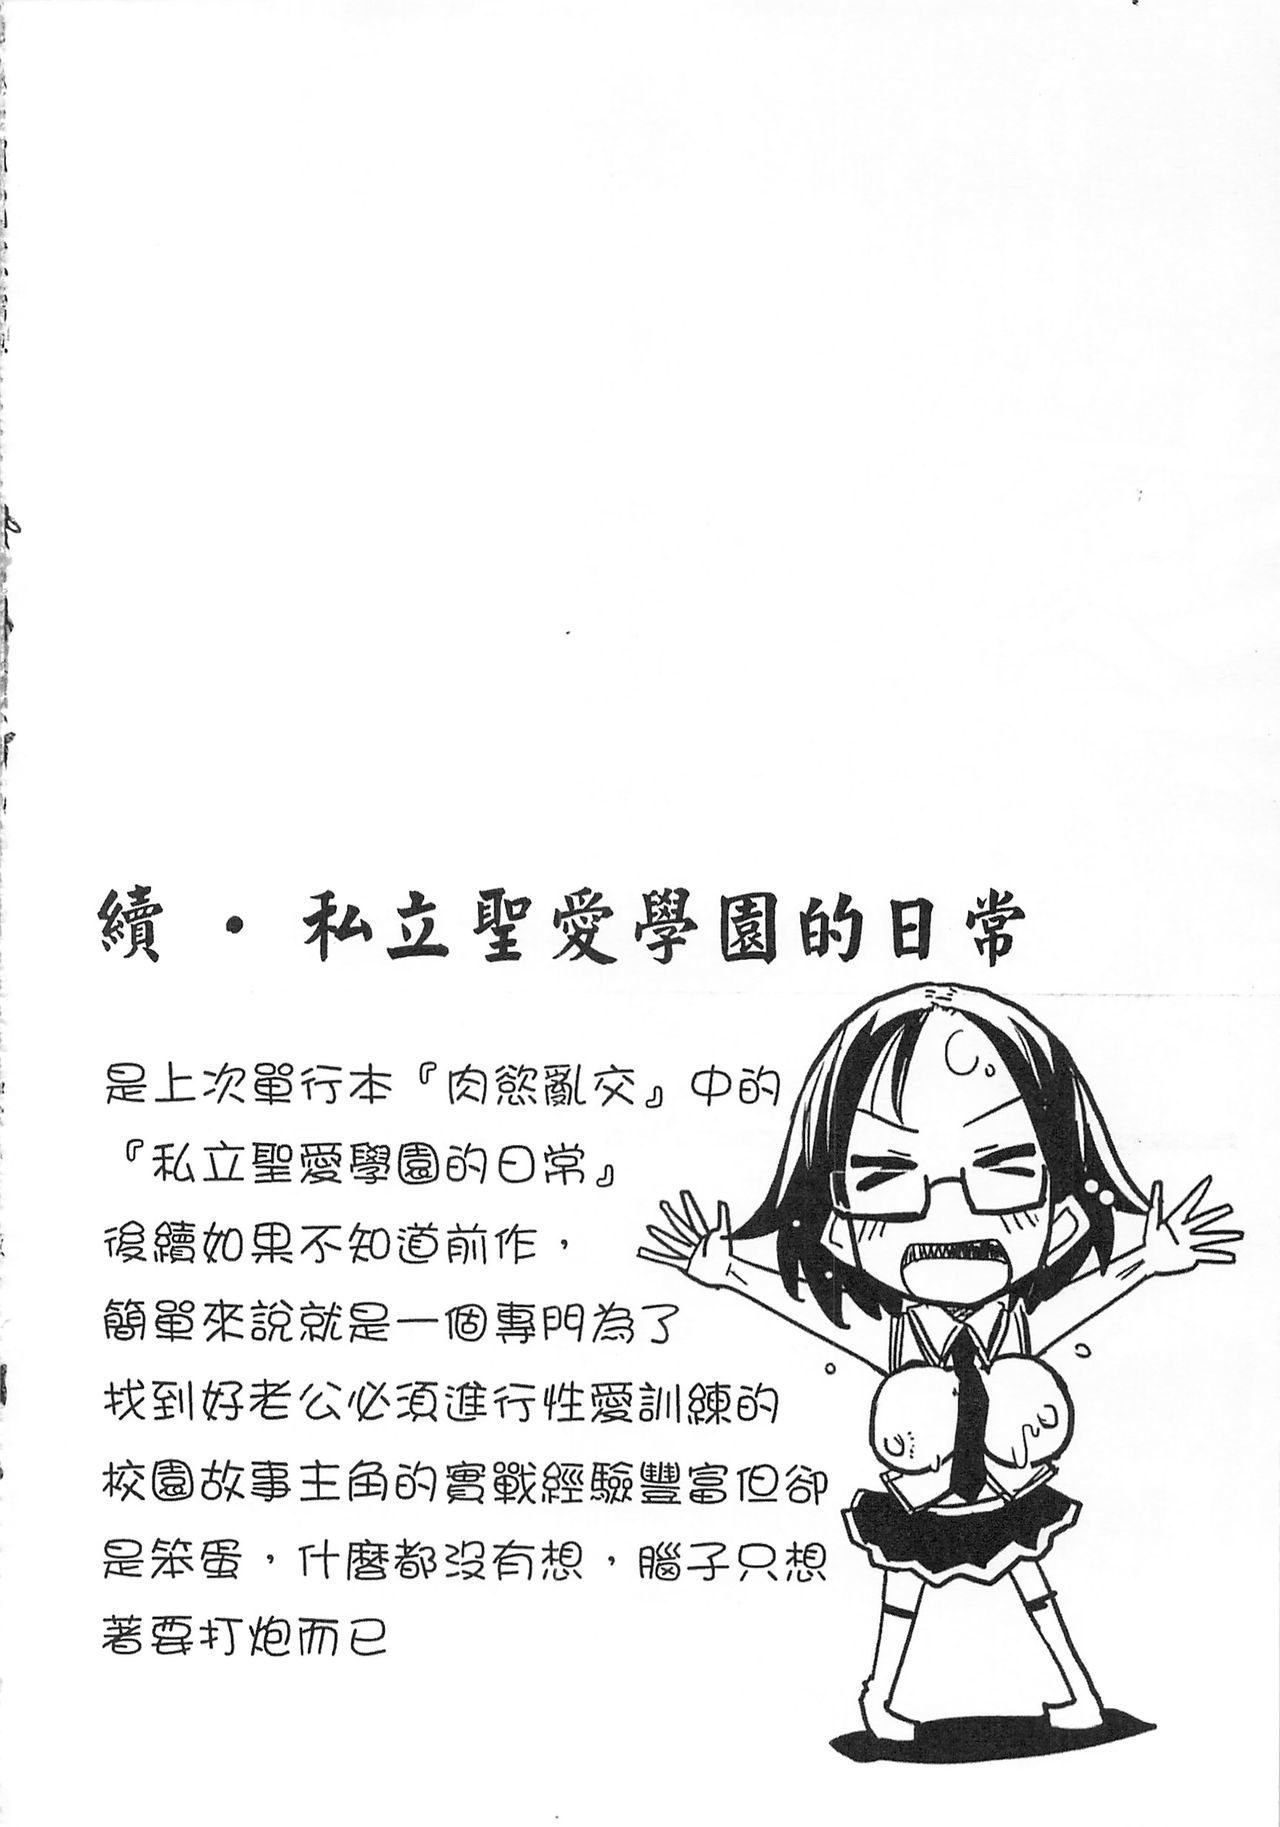 續・私立聖愛學園的日常
是上次單行本『肉慾亂交』中的
『私立聖愛學園的日常』
後續如果不知道前作，
簡單來說就是一個專門為了
找到好老公必須進行性愛訓練的
校園故事主角的實戰經驗豐富但卻
是笨蛋，什麼都沒有想，腦子只想
著要打炮而已